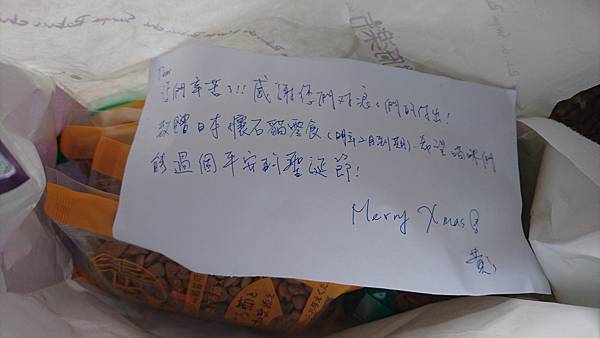 您們辛苦了!!! 感謝您們對浪浪們的付出!
致贈日本懷石貓零食(明年2月到期).希望喵咪們
能過個平安的聖誕節!
Merry Xmas